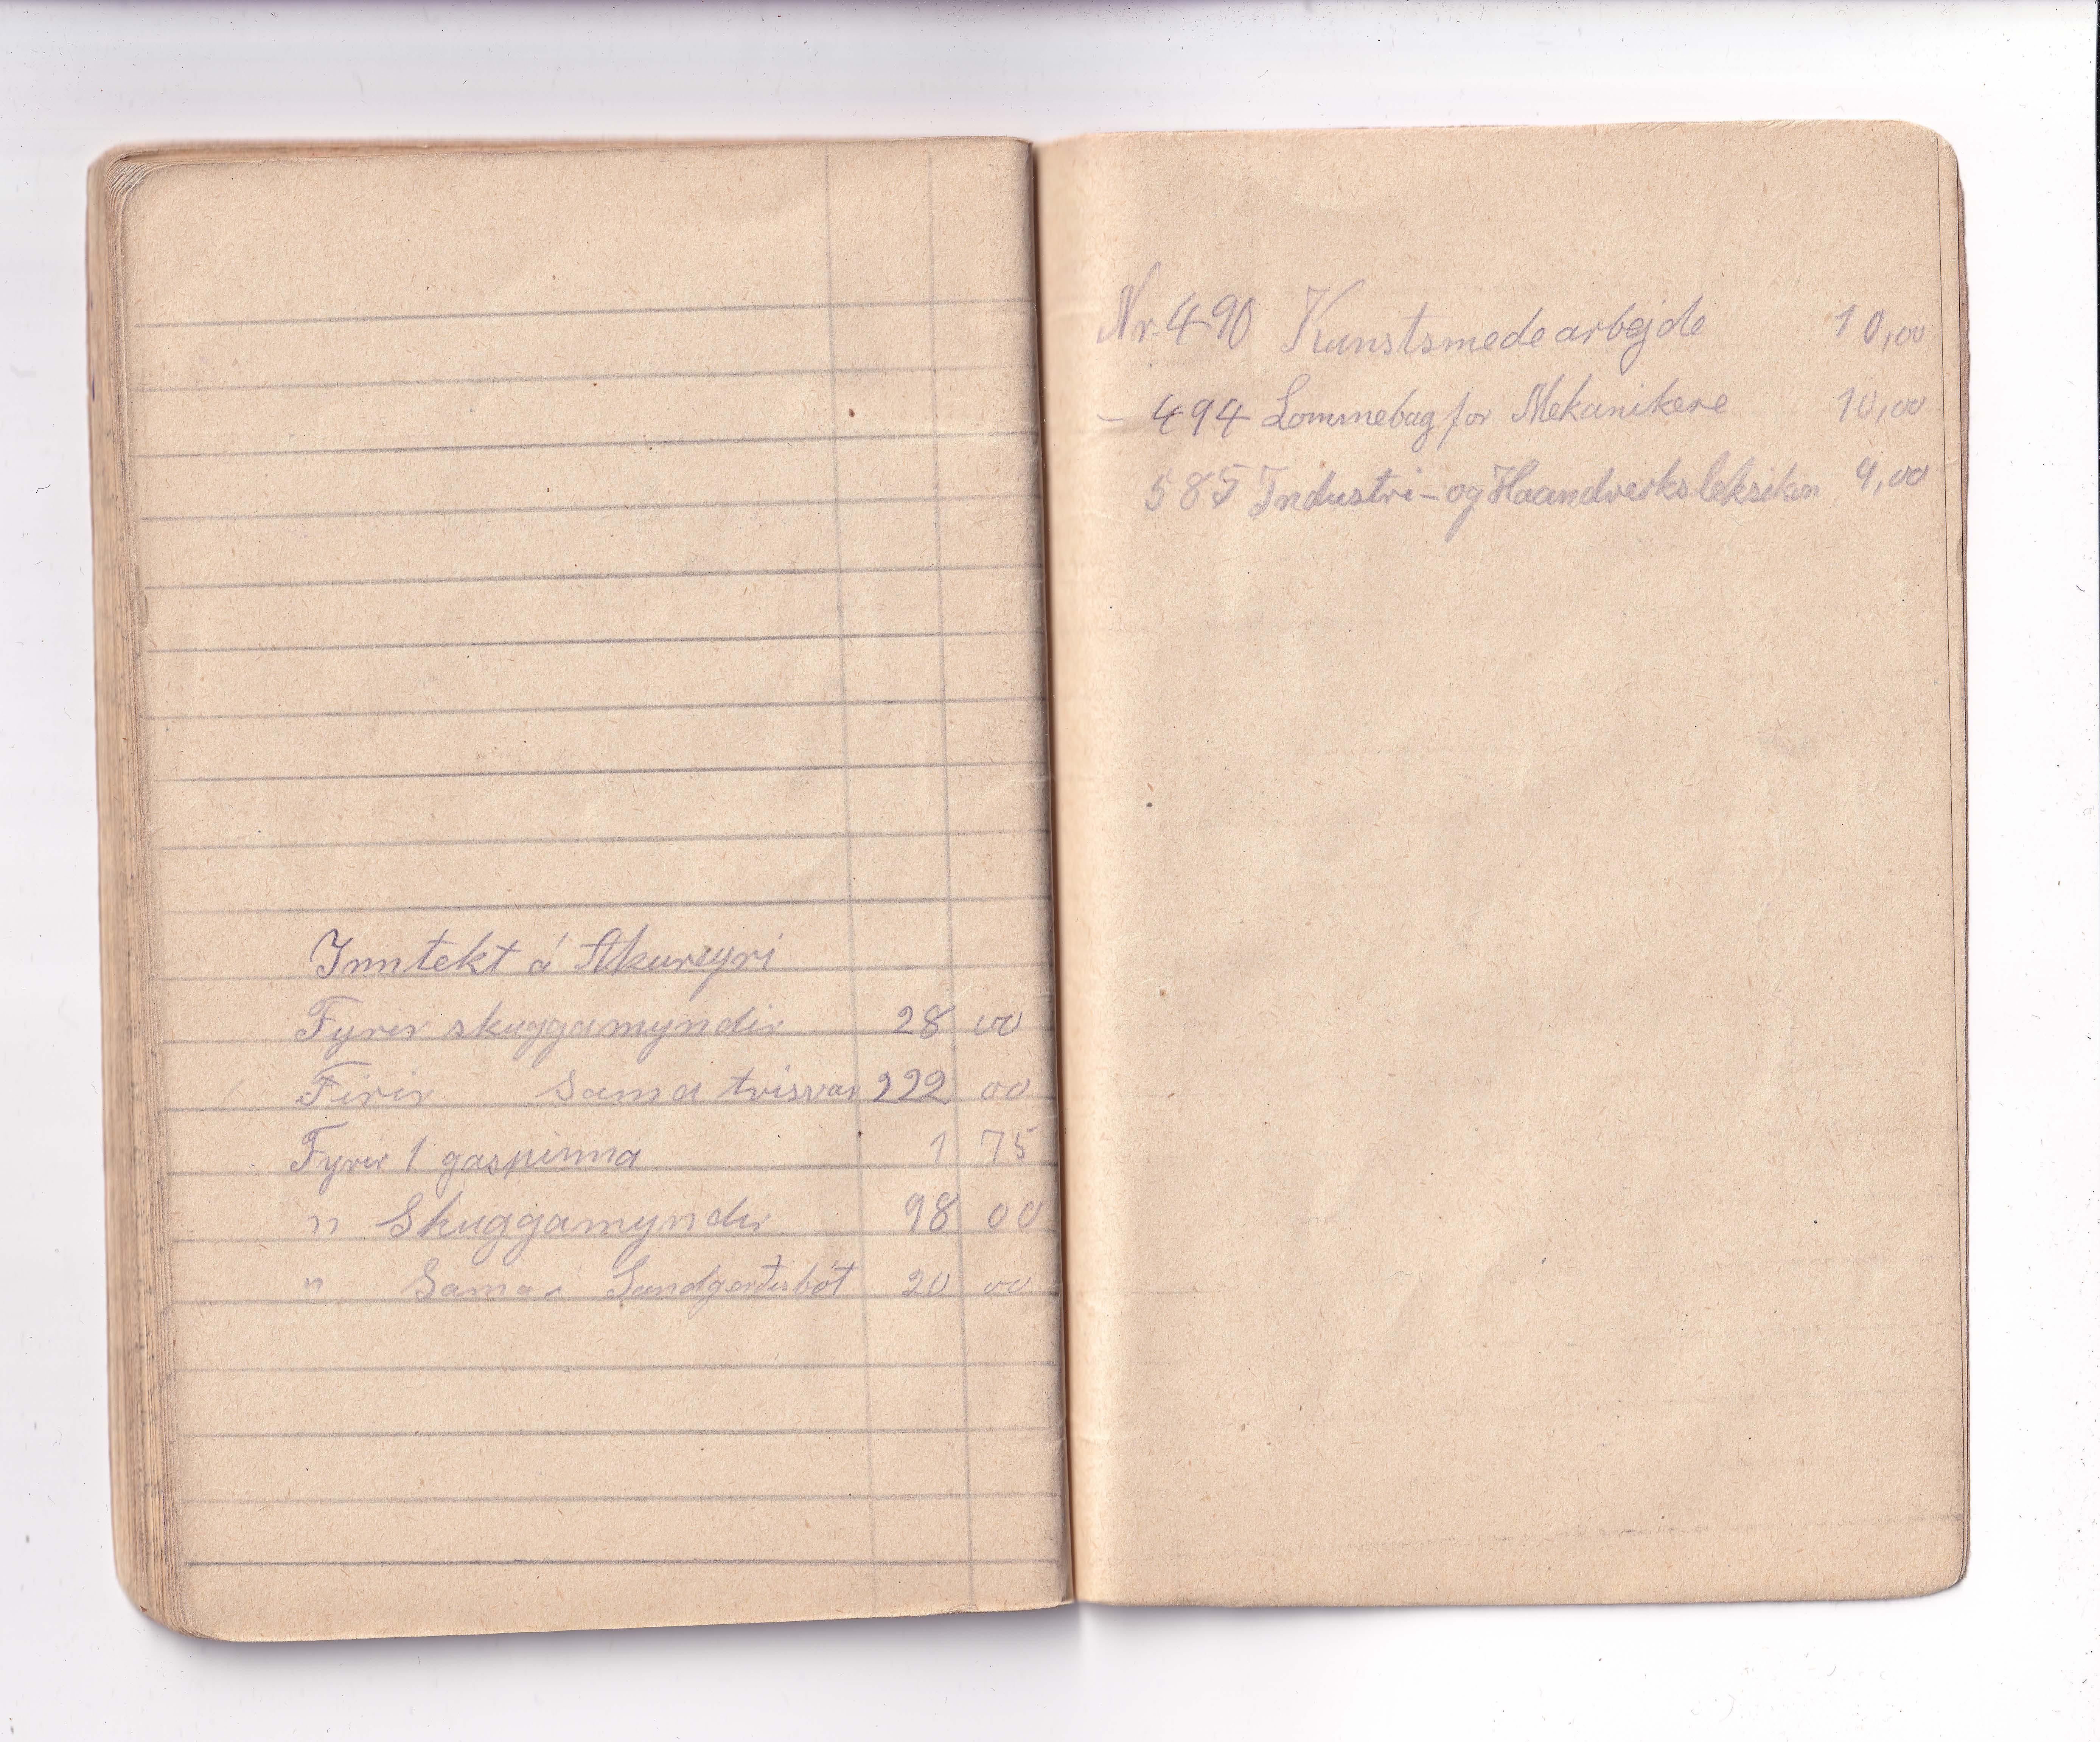 Inntekt á Akureyri
Fyrir skuggamyndir 28 00
Firir Sama trisvar 222 00
Fyrir 1 gaspinna 1 75
" Skuggamyndir 98 00
" Sama Sandgerðisbót 20 00
Nr. 490 Kunstsmedearbejde 10,00
- 494 Lommebag for Mekanikere 10,00
585 Industri- og Haandverksleksikon 9,00